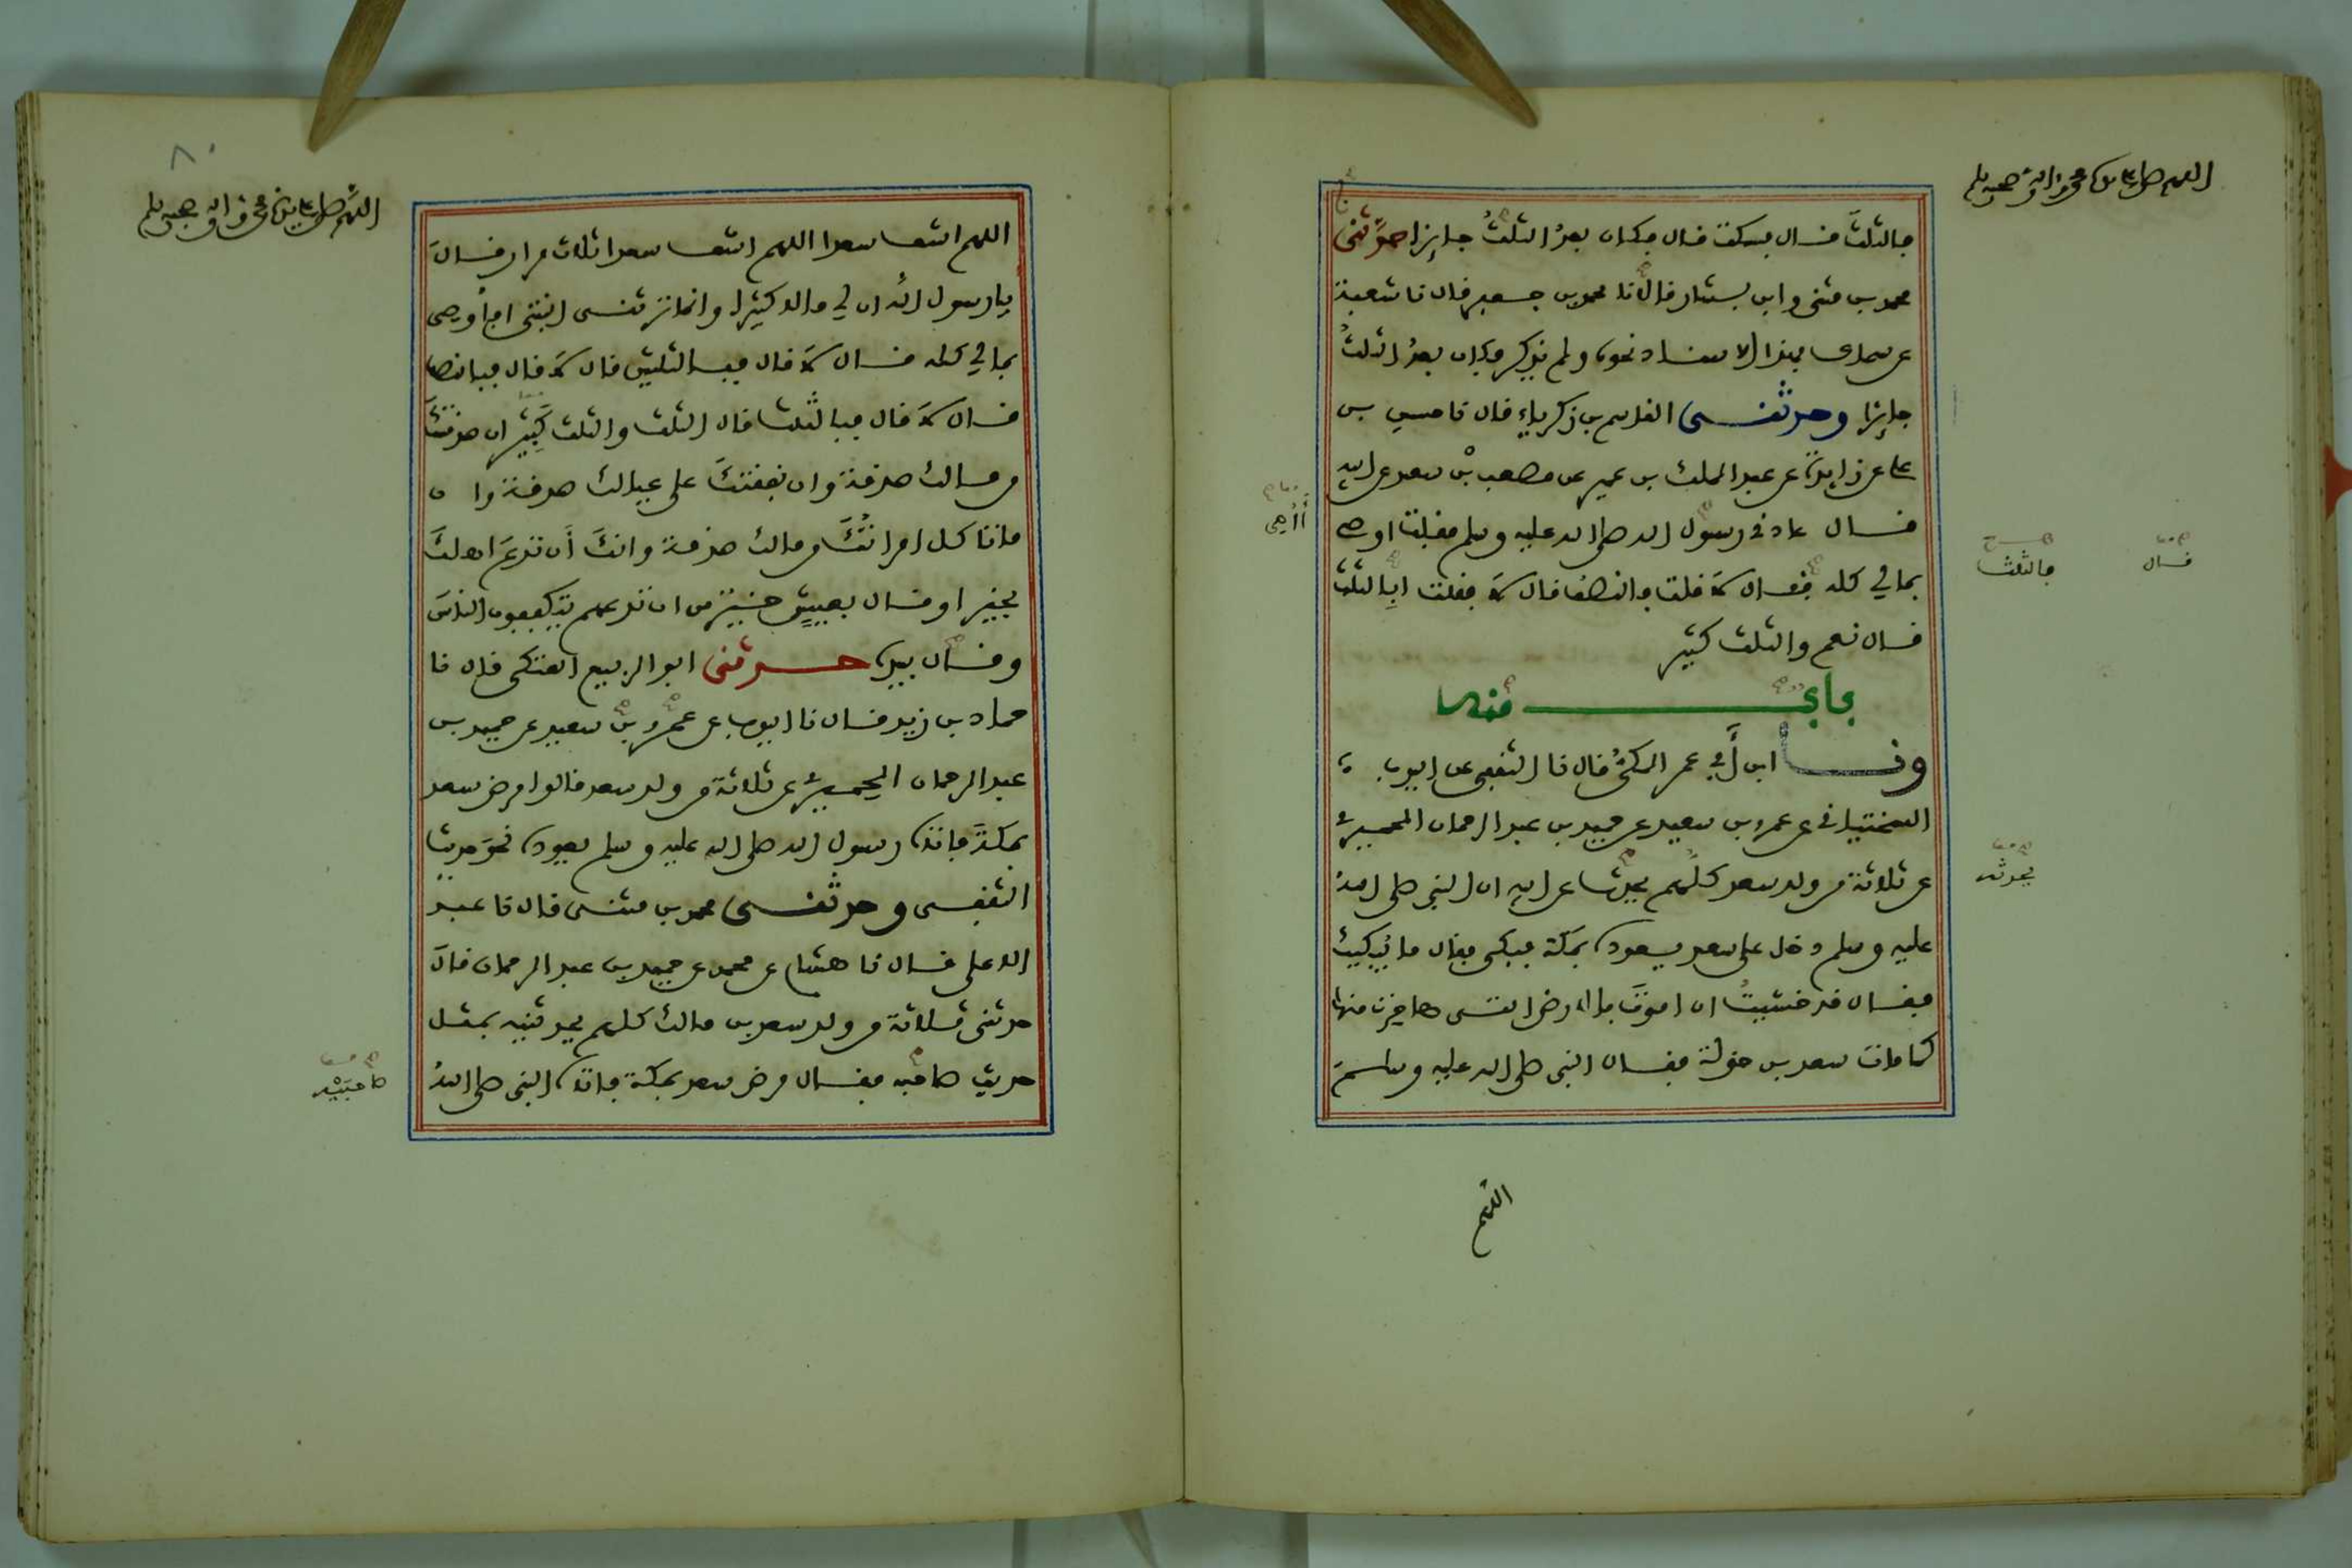 اللهم صل على سيدنا محمد واله وصحبه وسلم
فالثلث قال فسكت قال فكان بعد الثلث جايزا حدثني
محمد بن مثنى وابن بشار قالا نا محمد بن جعفر قال نا شعبة
عن سماك بهذا الاسناد نحوه ولم يذكر فكان بعد الثلث
جايزا وحدثنى القاسم بن زكرياء قال نا حسين بن
على عن زايدة عن عبد الملك بن عمير عن مصعب بن سعد عن ابيه
قال عادنى رسول الله صلى الله عليه وسلم فقلت اوصى
بمالي كله فقال لا قلت فالنصف قال لا فقلت ابالثلث
قال نعم والثلث كثير
أأوصى
فالثلث
قال
باب منه
ونا ابن أبي عمر المكي قال نا الثقفى عن ايوب
السختيانى عن عمرو بن سعيد عن حميد بن عبد الرحمان الحميرى
عن ثلاثة من ولد سعد كلهم يحدث عن ابيه ان النبى صلى الله
يحدثه
عليه وسلم دخل على سعد يعوده بمكة فبكى فقال ما يبكيك
فقال قد خشيت ان اموت بالارض التى هاجرت منها
كما مات سعد بن خولة فقال النبى صلى الله عليه وسلم
اللهم
٨٠
اللهم صل على سيدنا محمد واله وصحبه وسلم
اللهم اشف سعدا اللهم اشف سعدا ثلاث مرار قال
يا رسول الله ان لي مالا كثيرا وانما ترثنى ابنتى افأوصى
بمالي كله قال لا قال فبالثلثين قال لا قال فبالنصف
قال لا قال فبالثلث قال الثلث والثلث كثير ان صدقتك
من مالك صدقة وان نفقتك على عيالك صدقة وان
ما تاكل امراتك من مالك صدقة وانك أن تدع اهلك
بخير او قال بعيش خير من ان تدعهم يتكففون الناس
وقال بيده حدثنى ابو الربيع العتكى قال نا
حماد بن زيد قال نا ايوب عن عمرو بن سعيد عن حميد بن
عبد الرحمان الحميرى عن ثلاثة من ولد سعد قالوا مرض سعد
بمكة فاتاه رسول الله صلى الله عليه وسلم يعوده نحو حديث
الثقفى وحدثنى محمد بن مثنى قال نا عبد
الاعلى قال نا هشام عن محمد عن حميد بن عبد الرحمان قال
حدثنى ثلاثة من ولد سعد بن مالك كلهم يحدثنيه بمثل
حديث صاحبه فقال مرض سعد بمكة فاتاه النبى صلى الله
صاحبيه